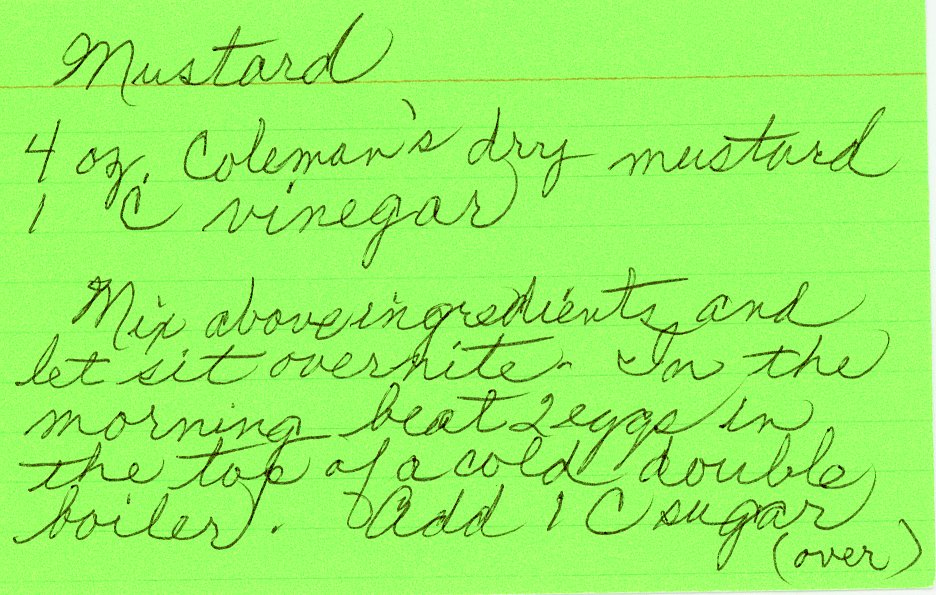 Mustard
4 oz. Coleman's dry mustard
1 C vinegar
Mix above ingredients and
let sit overnite. In the
morning beat 2 eggs in
the top of a cold double
boiler. Add 1 C sugar
(over)